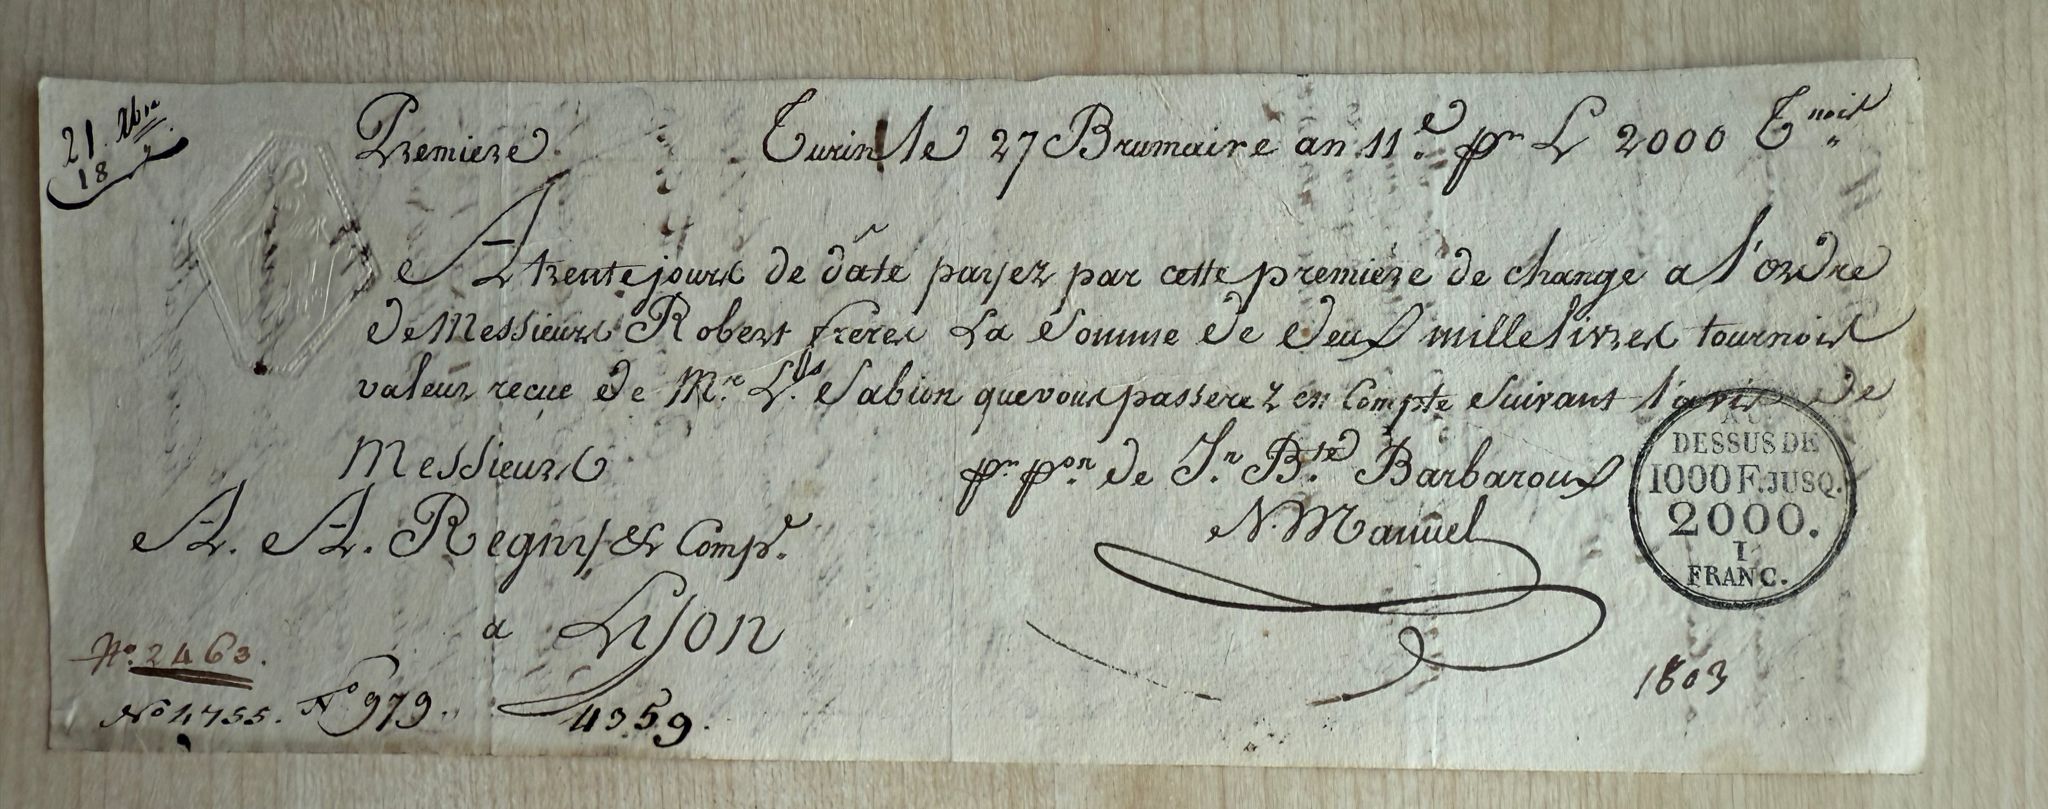 21. Xbre
18
Premiere. Turin le 27 Brumaire an 11.e pr L 2000 Tnois
A trente jours de date payez par cette premiere de change a l'ordre
de Messieurs Robert freres La Somme de deux mille livres tournois
valeur reçue de Mr. Ls. Sabion que vous passerez en Compte Suivant l'avis de
Messieurs
pr pon. de Jn Bte Barbaroux
A. A. Regny & Compe.
N. Manuel
a Lyon
AU
DESSUS DE
1000 F. JUSQ.
2000.
1
FRANC.
No. 2463.
No 1,755. No 979. 4359.
1803